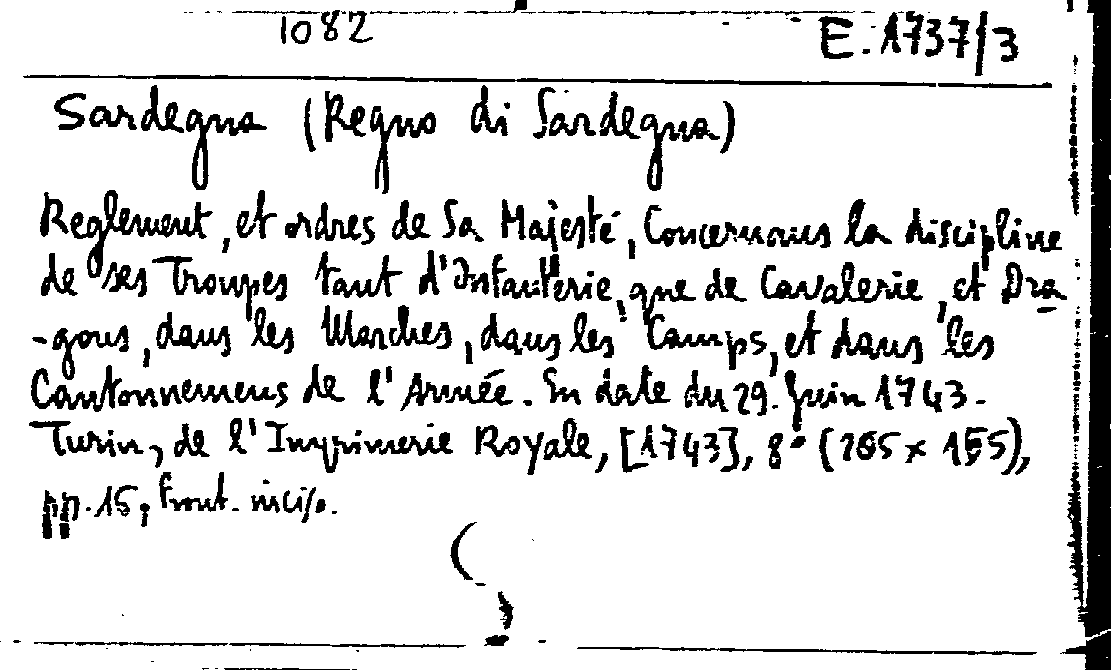 1082
E. 1737/3
Sardegna (Regno di Sardegna)
Reglement, et ordres de Sa Majesté, Concernans la discipline
de ses Troupes tant d'Infanterie, que de Cavalerie, et Dra
-gons, dans les Marches, dans les Camps, et dans les
Cantonnemens de l'Armée. En date du 29. Juin 1743.
Turin, de l'Imprimerie Royale, [1743], 8° (205 x 155),
pp. 15; front. incis.